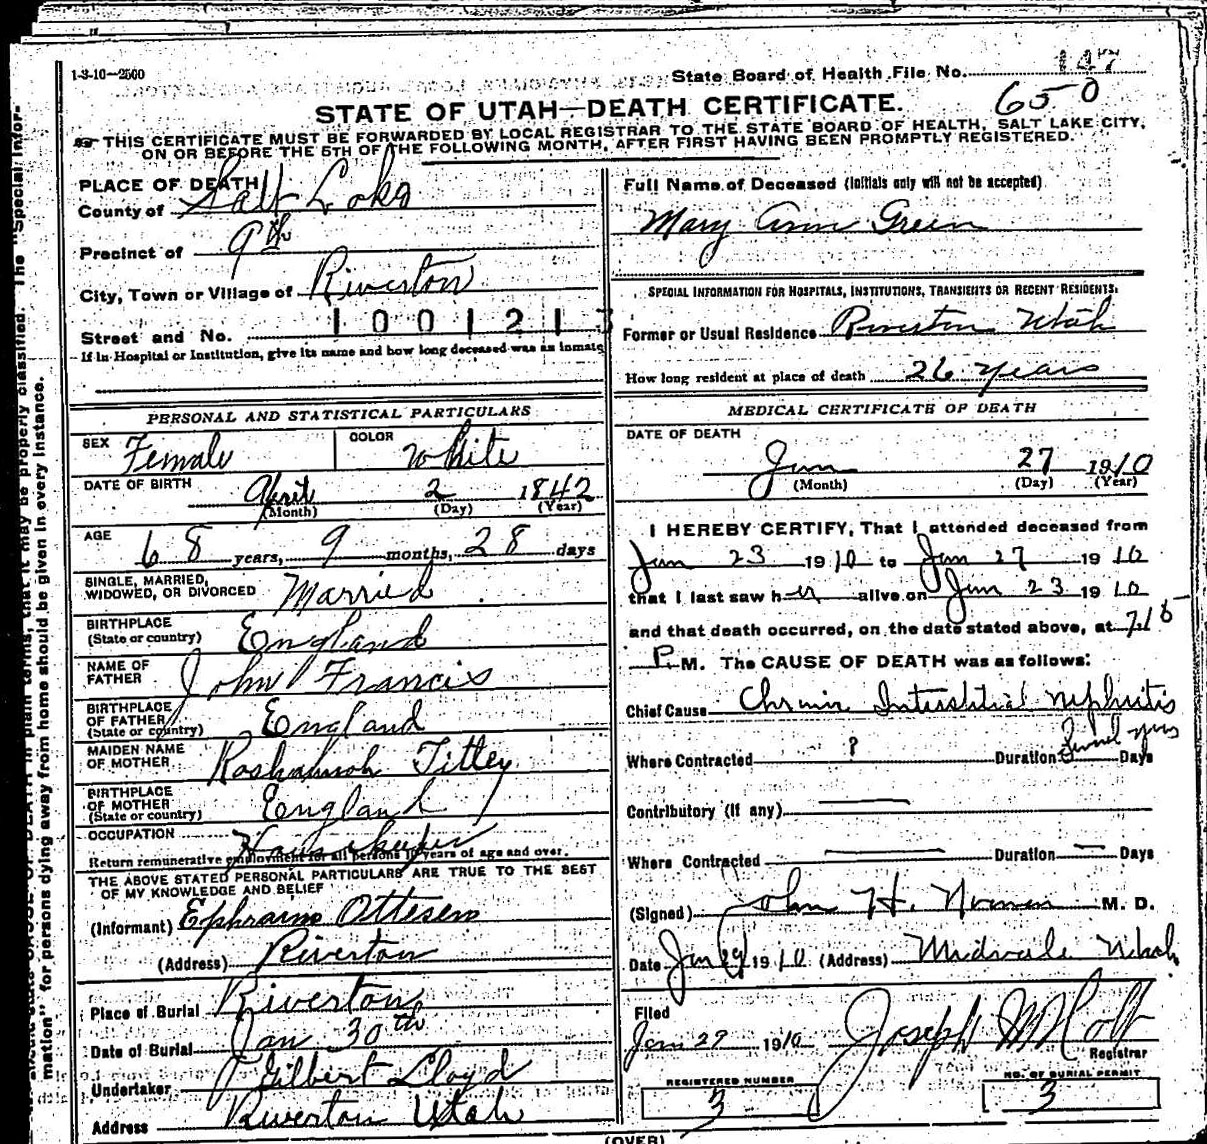 1-3-10-2500
State Board of Health File No. 147
650
STATE OF UTAH—DEATH CERTIFICATE.
THIS CERTIFICATE MUST BE FORWARDED BY LOCAL REGISTRAR TO THE STATE BOARD OF HEALTH, SALT LAKE CITY,
ON OR BEFORE THE 5TH OF THE FOLLOWING MONTH, AFTER FIRST HAVING BEEN PROMPTLY REGISTERED.
PLACE OF DEATH
County of Salt Lake
Precinct of 9th
City, Town or Village of Riverton
Street and No. 1001213
If in Hospital or Institution, give its name and how long deceased was an inmate
Full Name of Deceased (Initials only will not be accepted)
Mary Ann Green
SPECIAL INFORMATION FOR HOSPITALS, INSTITUTIONS, TRANSIENTS OR RECENT RESIDENTS:
Former or Usual Residence Riverton Utah
How long resident at place of death 26 years
PERSONAL AND STATISTICAL PARTICULARS
SEX Female COLOR White
DATE OF BIRTH
April 2 1842
(Month) (Day) (Year)
AGE
68 years, 9 months, 28 days
SINGLE, MARRIED,
WIDOWED, OR DIVORCED Married
BIRTHPLACE
(State or country) England
NAME OF
FATHER John Francis
BIRTHPLACE
OF FATHER
(State or country) England
MAIDEN NAME
OF MOTHER Roshannah Titley
BIRTHPLACE
OF MOTHER
(State or country) England
OCCUPATION Housekeeper
Return remunerative employment for all persons 10 years of age and over.
THE ABOVE STATED PERSONAL PARTICULARS ARE TRUE TO THE BEST
OF MY KNOWLEDGE AND BELIEF
(Informant) Ephraim Ottesen
(Address) Riverton
Place of Burial Riverton
Date of Burial Jan 30th
Undertaker Gilbert Lloyd
Address Riverton Utah
MEDICAL CERTIFICATE OF DEATH
DATE OF DEATH
Jan 27 1910
(Month) (Day) (Year)
I HEREBY CERTIFY, That I attended deceased from
Jan 23 1910 to Jan 27 1910
that I last saw her alive on Jan 23 1910
and that death occurred, on the date stated above, at 7.15
P. M. The CAUSE OF DEATH was as follows:
Chief Cause Chronic Interstitial Nephritis
Where Contracted ? Duration Several yrs Days
Contributory (if any)
Where Contracted Duration Days
(Signed) John H. M. D.
Date Jan 29 1910 (Address) Midvale Utah
Filed
Jan 29 1910 Joseph M Holt
Registrar
REGISTERED NUMBER
3
NO. OF BURIAL PERMIT
3
(OVER)
CAUSE OF DEATH in plain terms, that it may be properly classified. The "Special Infor-
mation" for persons dying away from home should be given in every instance.